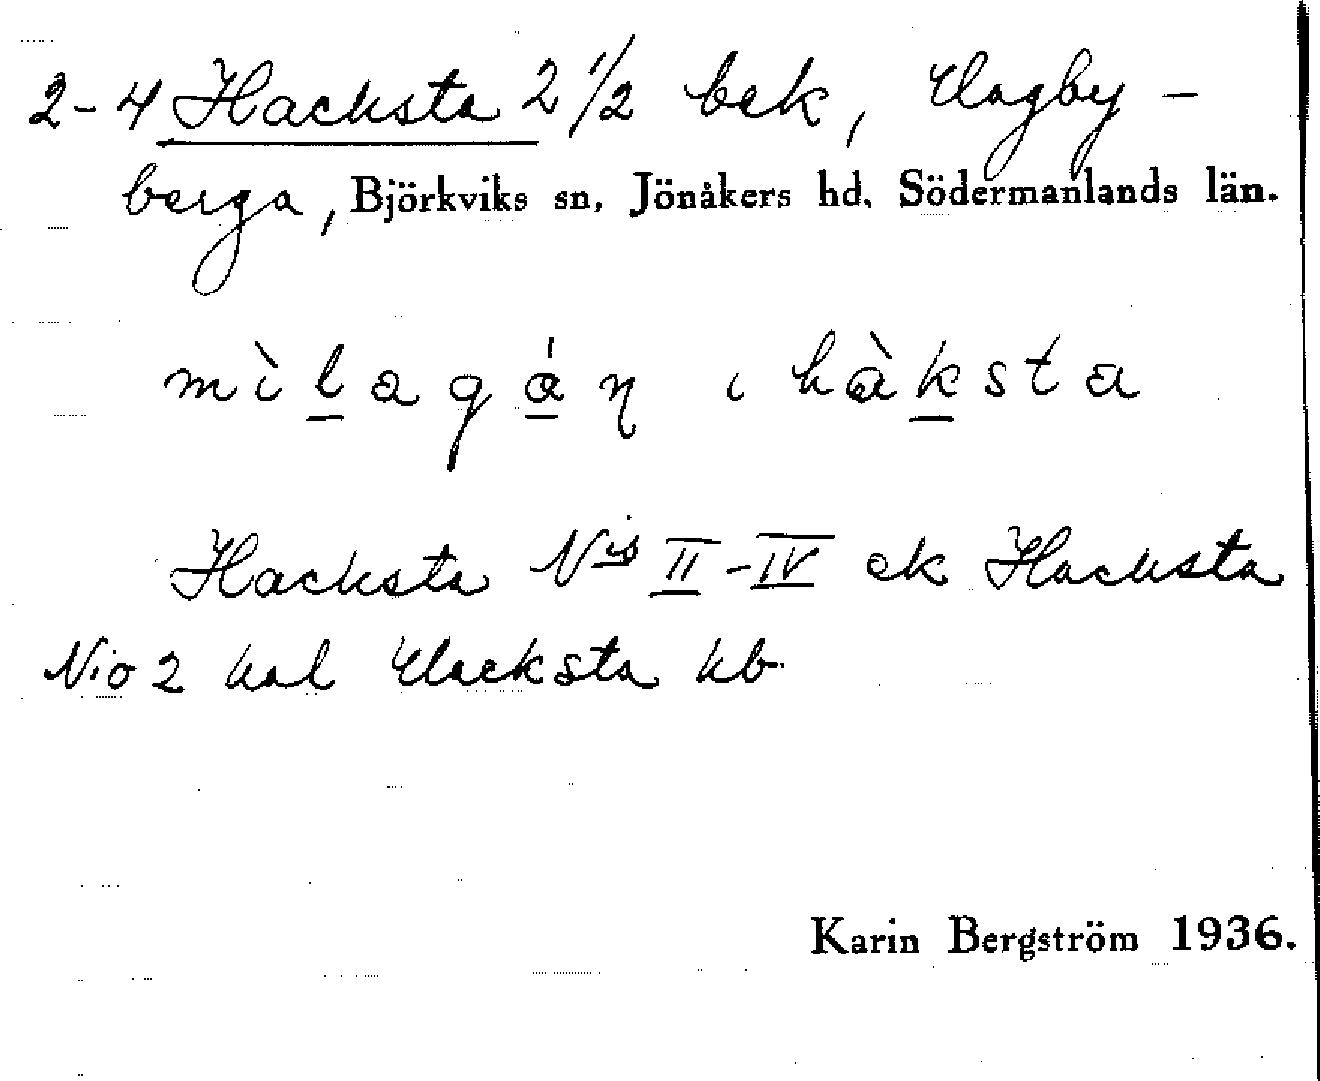 2-4 Hacksta 2 1/2 bek, Hagby-
berga, Björkviks sn, Jönåkers hd, Södermanlands län.
mìlagáŋ ı hàksta
Hacksta Nis II-IV ek Hacksta
No 2 kal Hacksta hb
Karin Bergström 1936.